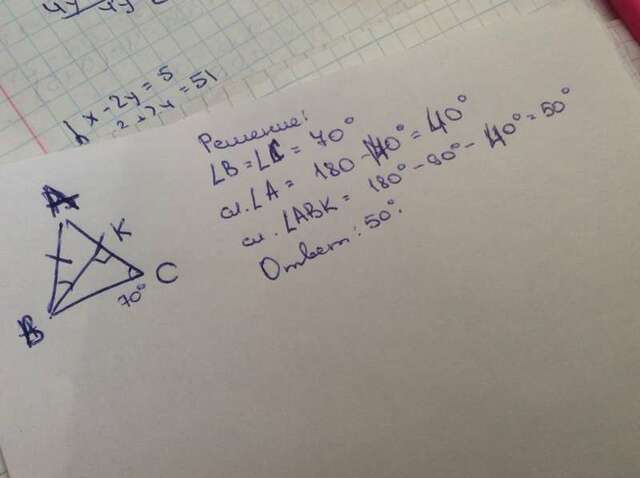 x - 2y = 5
² + 2y = 51
Решение:
∠B = ∠C = 70°
сл. ∠A = 180 - 140° = 40°
сл. ∠ABK = 180° - 90° - 40° = 50°
Ответ: 50°.
A
K
C
70°
B